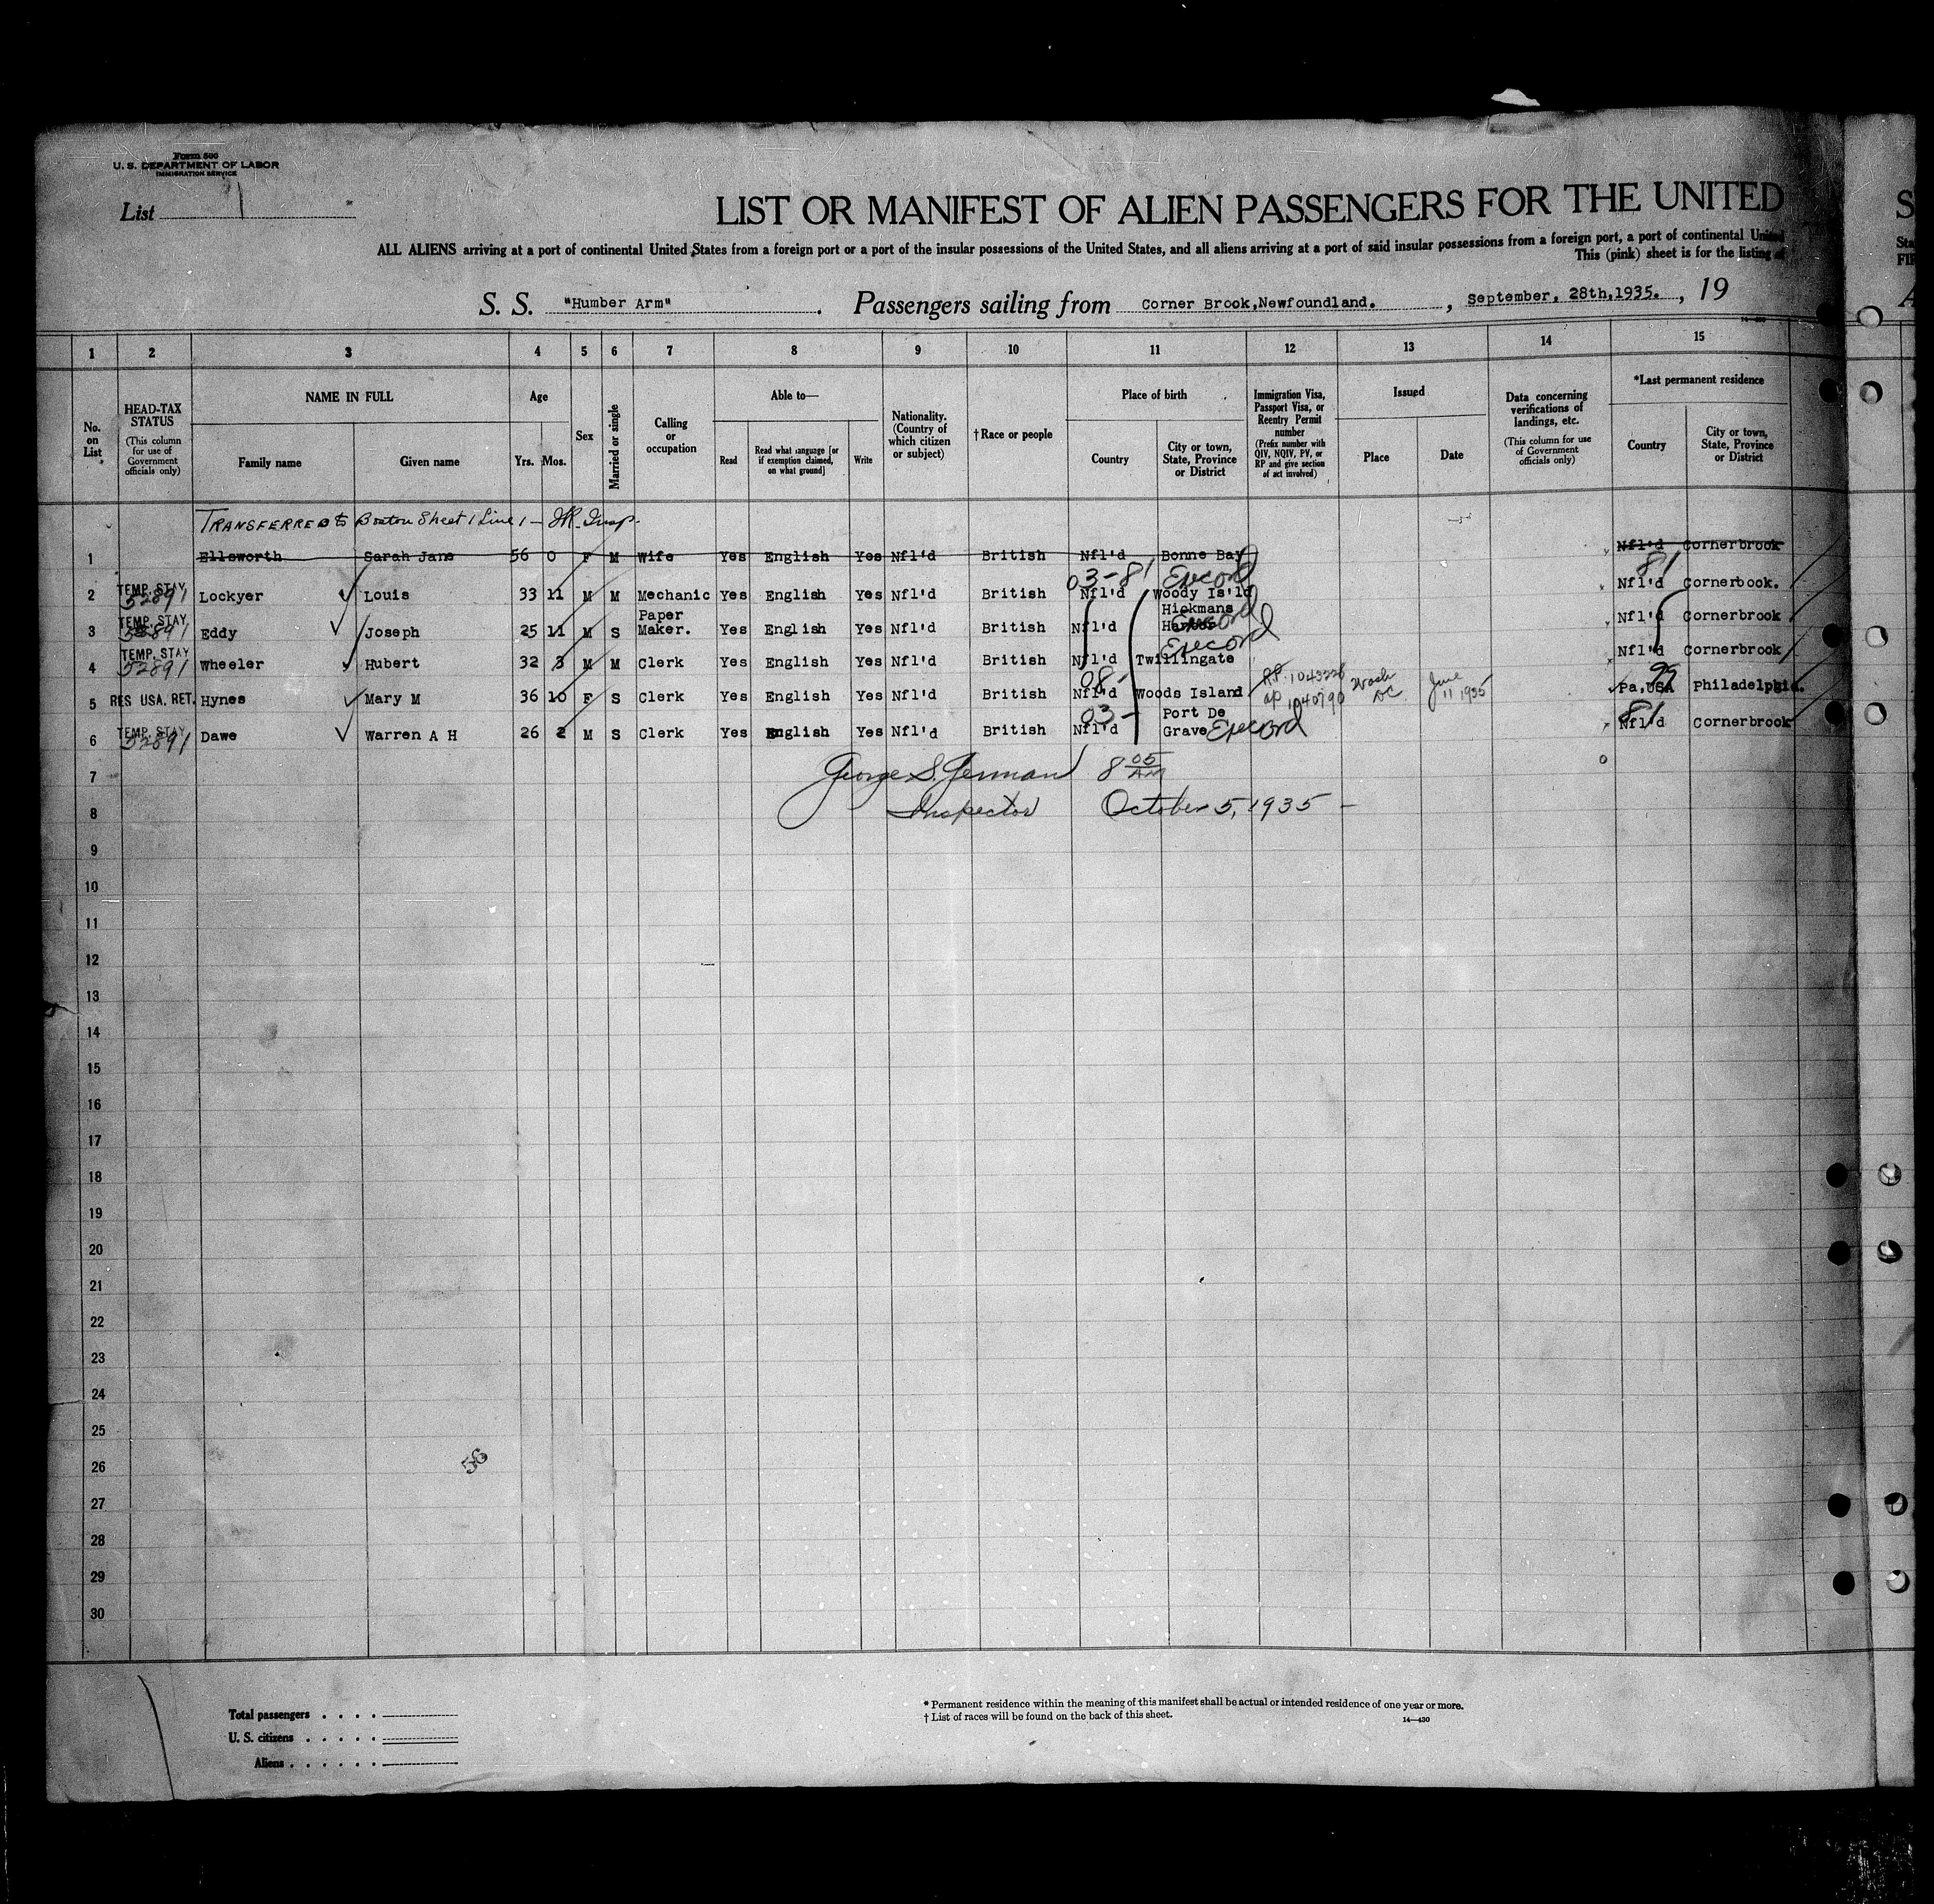 Form 500
U. S. DEPARTMENT OF LABOR
IMMIGRATION SERVICE
List 1
LIST OR MANIFEST OF ALIEN PASSENGERS FOR THE UNITED
ALL ALIENS arriving at a port of continental United States from a foreign port or a port of the insular possessions of the United States, and all aliens arriving at a port of said insular possessions from a foreign port, a port of continental United
This (pink) sheet is for the listing of
S. S. "Humber Arm" . Passengers sailing from Corner Brook, Newfoundland. , September, 28th, 1935. , 19
1 2 3 4 5 6 7 8 9 10 11 12 13 14 15
No. on List
HEAD-TAX STATUS (This column for use of Government officials only)
NAME IN FULL
Family name Given name
Age
Yrs. Mos.
Sex
Married or single
Calling or occupation
Able to—
Read
Read what language [or if exemption claimed, on what ground]
Write
Nationality. (Country of which citizen or subject)
†Race or people
Place of birth
Country
City or town, State, Province or District
Immigration Visa, Passport Visa, or Reentry Permit number (Prefix number with QIV, NQIV, PV, or RP and give section of act involved)
Issued
Place Date
Data concerning verifications of landings, etc. (This column for use of Government officials only)
*Last permanent residence
Country
City or town, State, Province or District
TRANSFERRED to Boston Sheet 1 Line 1 — Insp.
1 Ellsworth Sarah Jane 56 0 F M Wife Yes English Yes Nfl'd British Nfl'd Bonne Bay Nfl'd Cornerbrook
03-81 81
2 TEMP. STAY 52891 Lockyer Louis 33 11 M M Mechanic Yes English Yes Nfl'd British Nfl'd Woody Is'ld Nfl'd Cornerbook.
3 TEMP. STAY 52891 Eddy Joseph 25 11 M S Paper Maker. Yes English Yes Nfl'd British Nfl'd Hickmans Harbor Nfl'd Cornerbrook
4 TEMP. STAY 52891 Wheeler Hubert 32 3 M M Clerk Yes English Yes Nfl'd British Nfl'd Twillingate Nfl'd Cornerbrook
08- 99
5 RES USA. RET. Hynes Mary M 36 10 F S Clerk Yes English Yes Nfl'd British Nfl'd Woods Island RP. 1043226 ap 1040790 Wash DC June 11 1935 Pa, USA Philadelphia.
03- 81
6 TEMP. STAY 52891 Dawe Warren A H 26 2 M S Clerk Yes English Yes Nfl'd British Nfl'd Port De Grave Nfl'd Cornerbrook
7 George S. German 8 05 AM
8 Inspector October 5, 1935 —
9
10
11
12
13
14
15
16
17
18
19
20
21
22
23
24
25
26
27
28
29
30
56
Total passengers
U. S. citizens
Aliens
* Permanent residence within the meaning of this manifest shall be actual or intended residence of one year or more.
† List of races will be found on the back of this sheet.
14—430